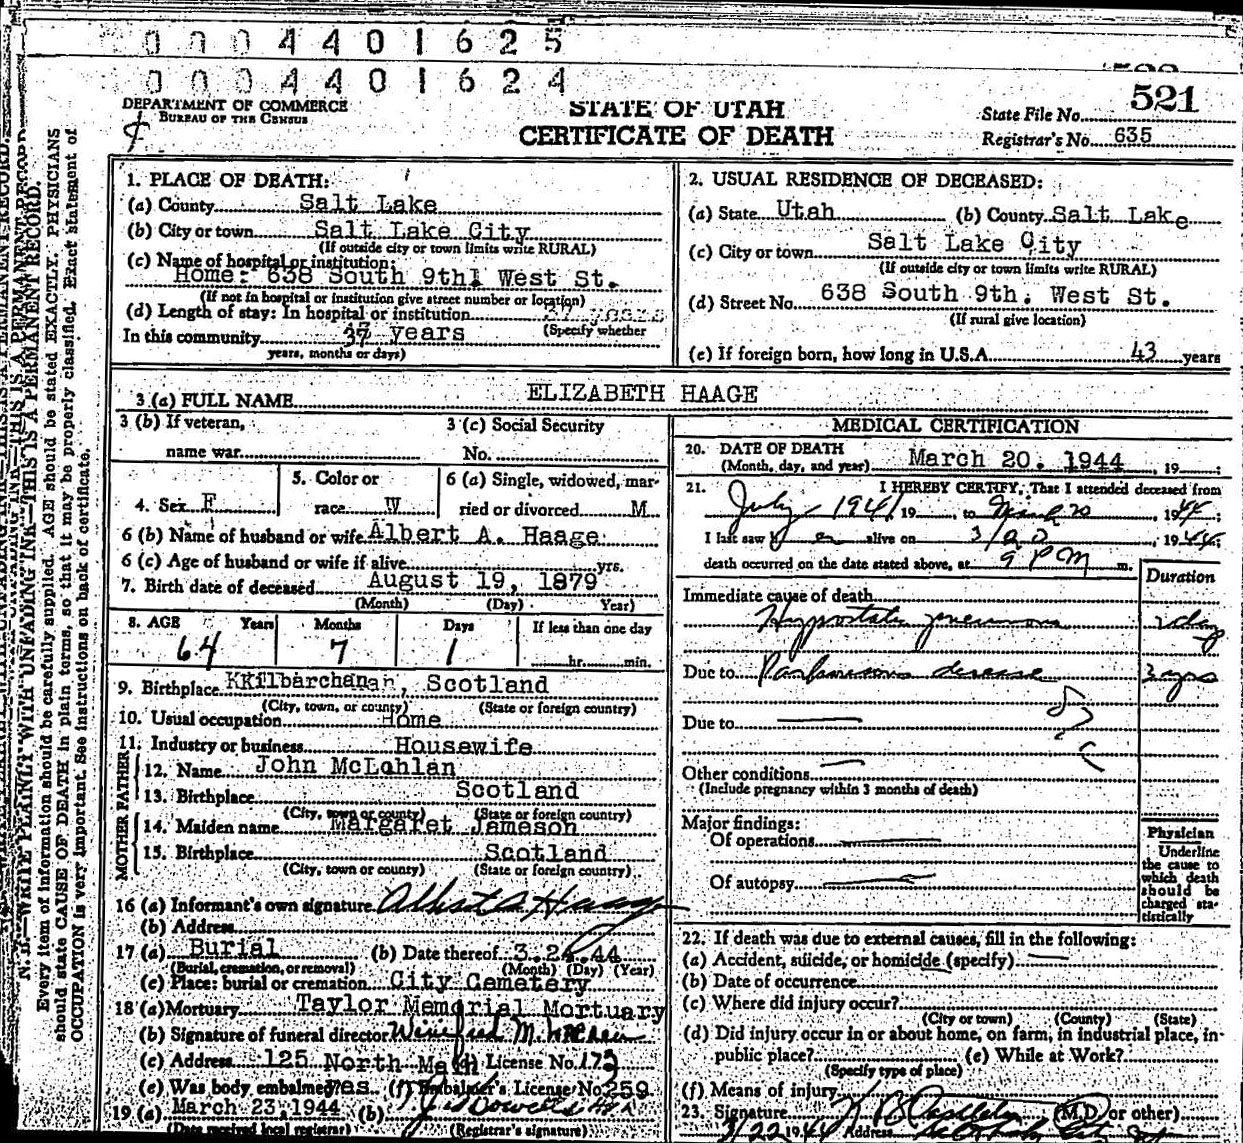 0004401625
0004401624
DEPARTMENT OF COMMERCE
BUREAU OF THE CENSUS
STATE OF UTAH
CERTIFICATE OF DEATH
State File No. 521
Registrar's No. 635
N. B.—WRITE PLAINLY WITH UNFADING INK—THIS IS A PERMANENT RECORD.
Every item of information should be carefully supplied. AGE should be stated EXACTLY. PHYSICIANS
should state CAUSE OF DEATH in plain terms, so that it may be properly classified. Exact statement of
OCCUPATION is very important. See instructions on back of certificate.
1. PLACE OF DEATH:
(a) County Salt Lake
(b) City or town Salt Lake City
(If outside city or town limits write RURAL)
(c) Name of hospital or institution:
Home: 638 South 9th West St.
(If not in hospital or institution give street number or location)
(d) Length of stay: In hospital or institution 37 years
(Specify whether
In this community 37 years
years, months or days)
2. USUAL RESIDENCE OF DECEASED:
(a) State Utah (b) County Salt Lake
(c) City or town Salt Lake City
(If outside city or town limits write RURAL)
(d) Street No. 638 South 9th. West St.
(If rural give location)
(e) If foreign born, how long in U.S.A. 43 years
3 (a) FULL NAME ELIZABETH HAAGE
3 (b) If veteran,
name war
3 (c) Social Security
No.
4. Sex F
5. Color or
race W
6 (a) Single, widowed, mar-
ried or divorced M
6 (b) Name of husband or wife Albert A. Haage
6 (c) Age of husband or wife if alive yrs.
7. Birth date of deceased August 19, 1879
(Month) (Day) Year)
8. AGE Years Months Days If less than one day
64 7 1 hr. min.
9. Birthplace KKilbarchanan, Scotland
(City, town, or county) (State or foreign country)
10. Usual occupation Home
11. Industry or business Housewife
FATHER
12. Name John McLahlan
13. Birthplace Scotland
(City, town or county) (State or foreign country)
MOTHER
14. Maiden name Margaret Jameson
15. Birthplace Scotland
(City, town or county) (State or foreign country)
16 (a) Informant's own signature Albert A Haage
(b) Address
17 (a) Burial (b) Date thereof 3.24.44
(Burial, cremation, or removal) (Month) (Day) (Year)
(c) Place: burial or cremation City Cemetery
18 (a) Mortuary Taylor Memorial Mortuary
(b) Signature of funeral director
(c) Address 125 North Main License No. 175
(e) Was body embalmed yes (f) Embalmer's License No. 259
19 (a) March 23, 1944 (b)
(Date received local registrar) (Registrar's signature)
MEDICAL CERTIFICATION
20. DATE OF DEATH
(Month, day, and year) March 20. 1944, 19 ;
21. I HEREBY CERTIFY, That I attended deceased from
July 1941 19 to March 20 1944;
I last saw h er alive on 3/20, 1944;
death occurred on the date stated above, at 9 PM m.
Duration
Immediate cause of death
Hypostatic pneumonia 2 day
Due to Parkinsons disease 3 yrs
Due to
Other conditions
(Include pregnancy within 3 months of death)
Major findings:
Of operations
Of autopsy
Physician
Underline
the cause to
which death
should be
charged sta-
tistically
22. If death was due to external causes, fill in the following:
(a) Accident, suicide, or homicide (specify)
(b) Date of occurrence
(c) Where did injury occur?
(City or town) (County) (State)
(d) Did injury occur in or about home, on farm, in industrial place, in
public place? (e) While at Work?
(Specify type of place)
(f) Means of injury
23. Signature (M.D. or other)
3/22 1944 Address